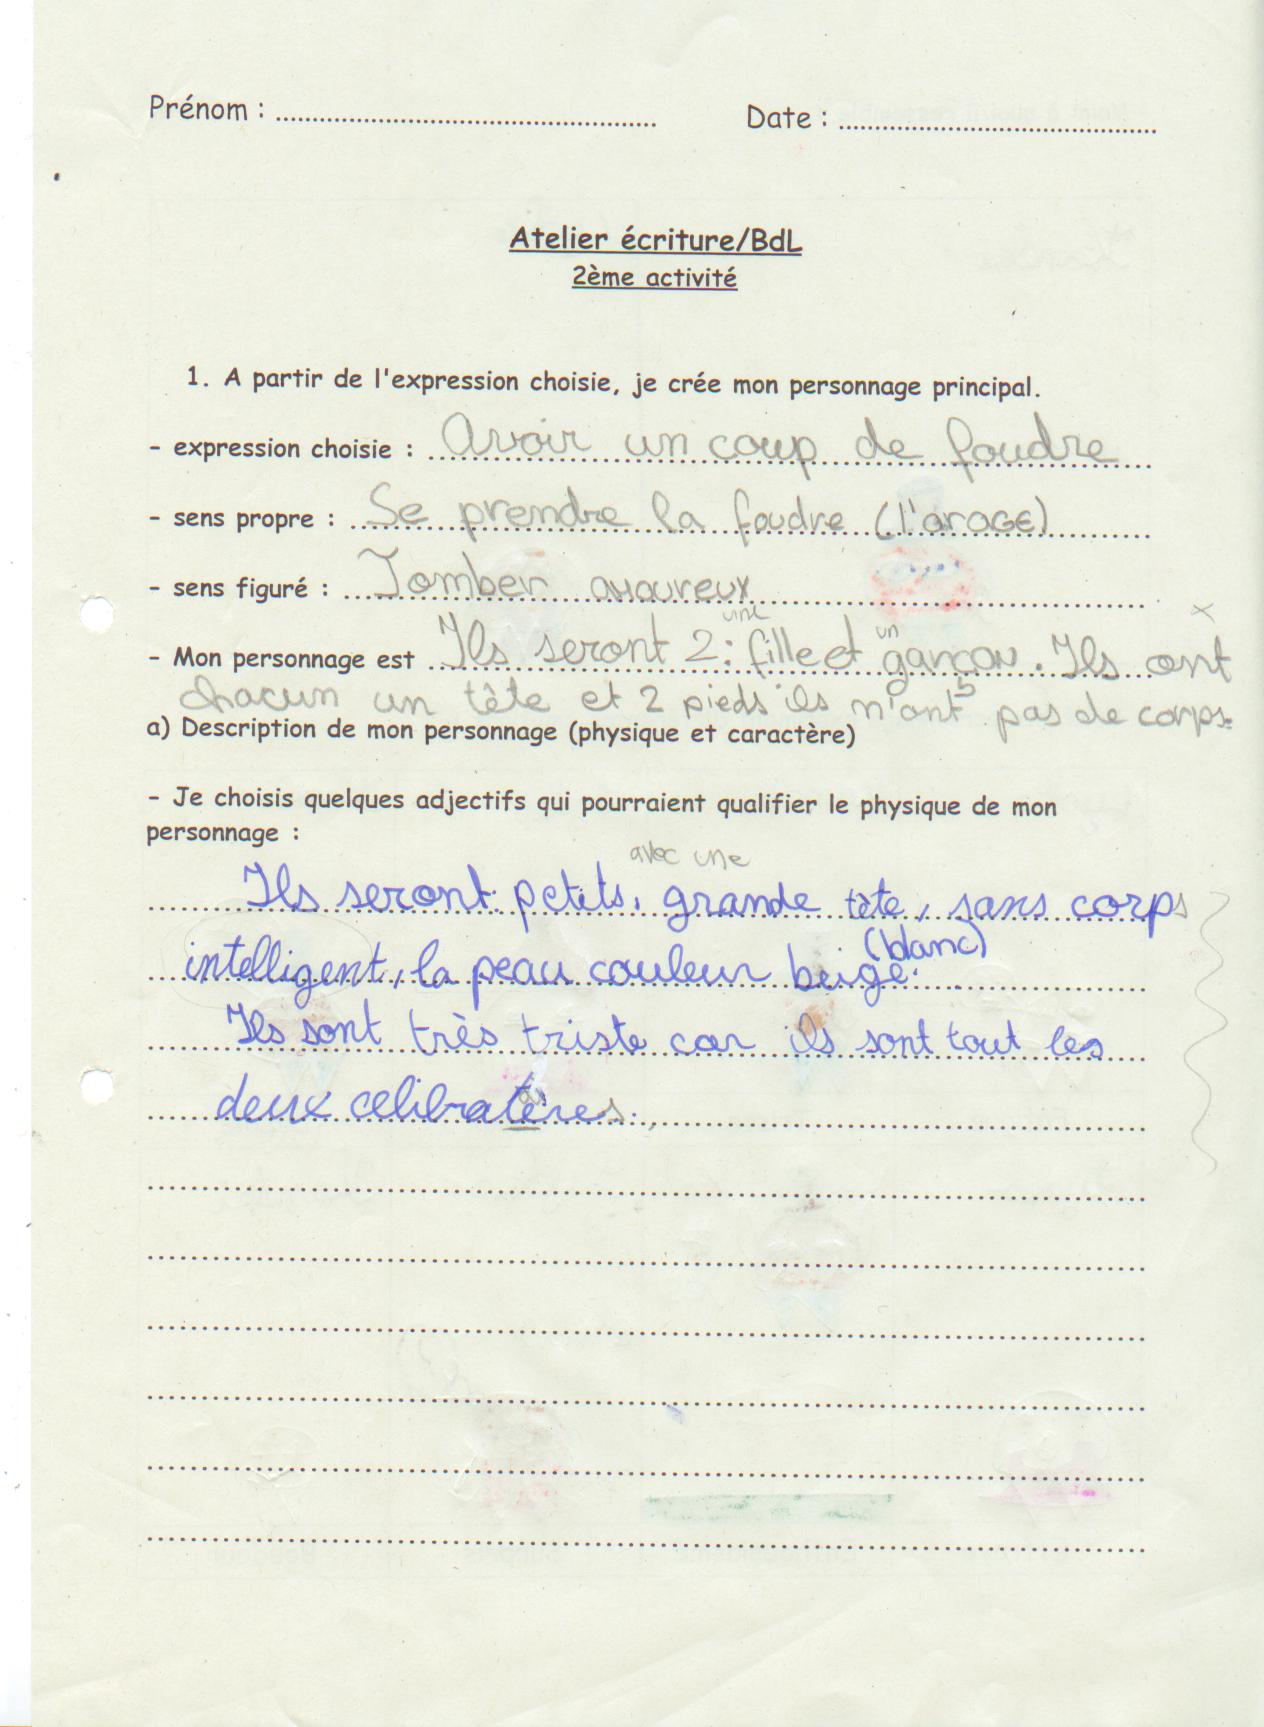 Prénom : ............................................... Date : ........................................
Atelier écriture/BdL
2ème activité
1. A partir de l'expression choisie, je crée mon personnage principal.
- expression choisie : Avoir un coup de foudre
- sens propre : Se prendre la foudre (l'orage)
- sens figuré : Tomber amoureux
une un x
- Mon personnage est Ils seront 2: fille et garçon. Ils ont
chacun un tête et 2 pieds ils n'ont pas de corps.
a) Description de mon personnage (physique et caractère)
- Je choisis quelques adjectifs qui pourraient qualifier le physique de mon
personnage :
avec une
Ils seront petits, grande tête, sans corps
(blanc)
intelligent, la peau couleur beige.
Ils sont très triste car ils sont tout les
ai
deux celibratères.